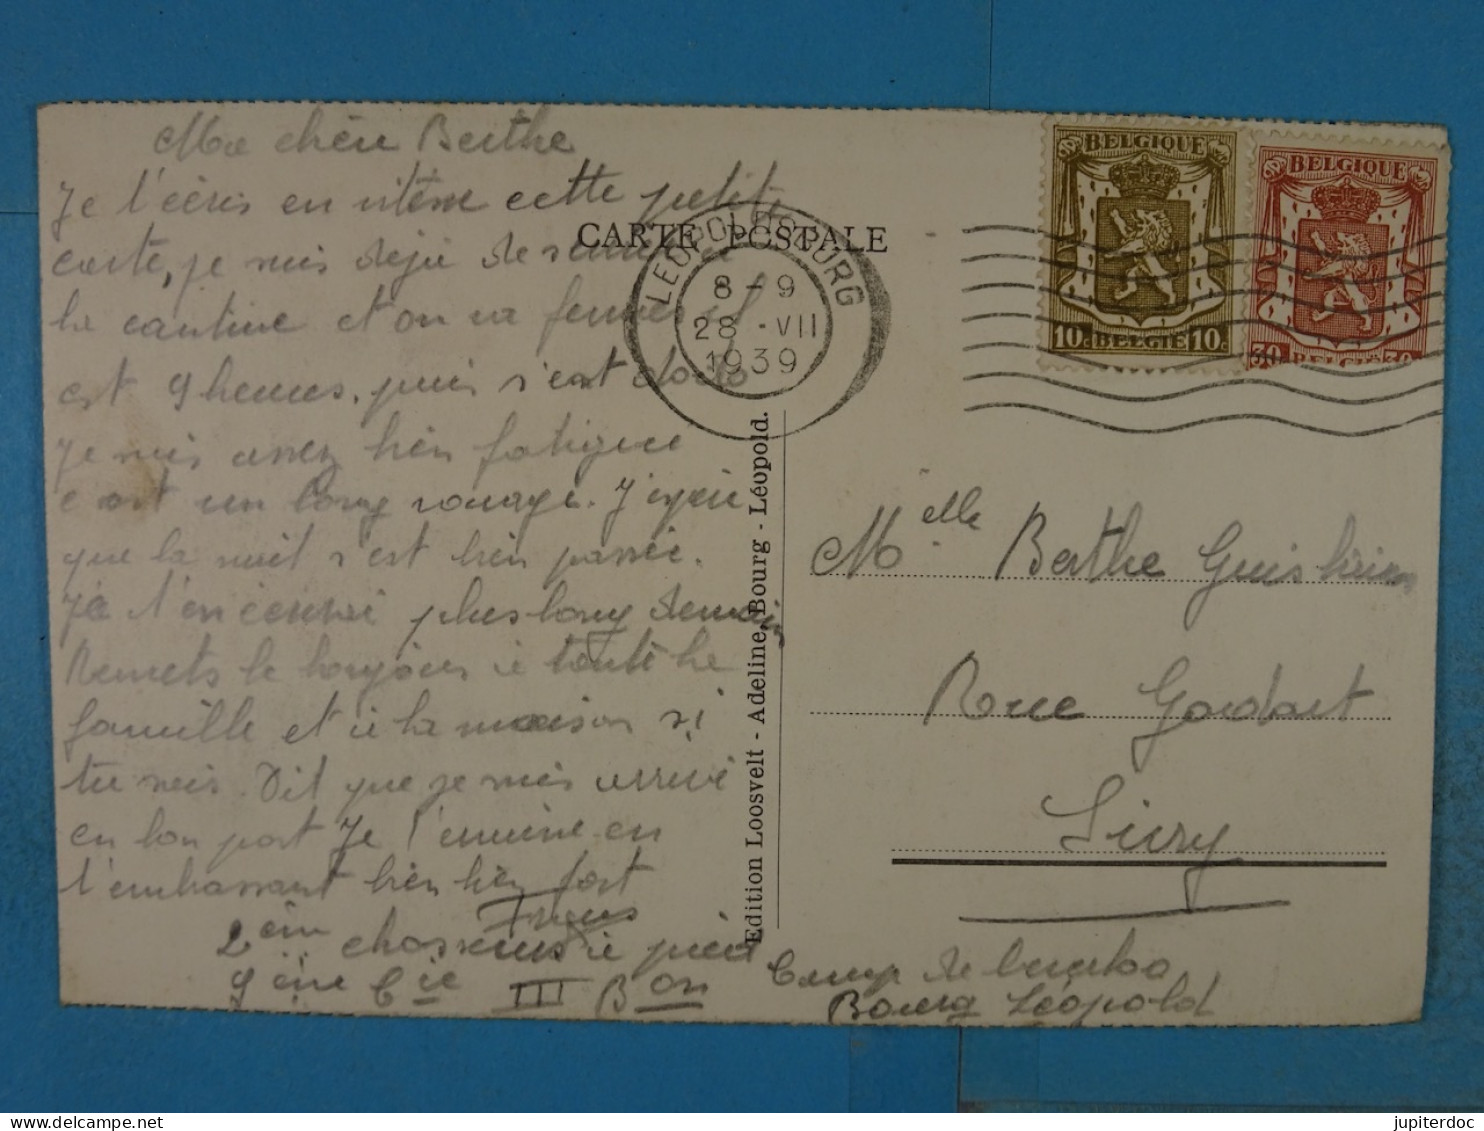 Ma chère Berthe
Je t'écris en vitesse cette petite
carte, je suis déjà
la cantine et on va fermer il
est 9 heures, puis c'est
Je suis assez bien fatigué
c'est un long voyage. J'espère
que la nuit s'est bien passée.
Je t'en écrirai plus long demain
Remets le bonjour à toute la
famille et à la maison si
tu vas. Dit que je suis arrivé
en bon port Je termine en
t'embrassant bien bien fort
2ème chasseurs à pied
9ème Cie III Bon
Camp de
Bourg Léopold
CARTE POSTALE
LEOPOLDSBURG
8-9
28 VII
1939
BELGIQUE
10c BELGIE 10c
BELGIQUE
30 BELGIË 30
Edition Loosvelt - Adeline Bourg - Léopold.
Melle Berthe
Rue Godart
Sivry
jupiterdoc